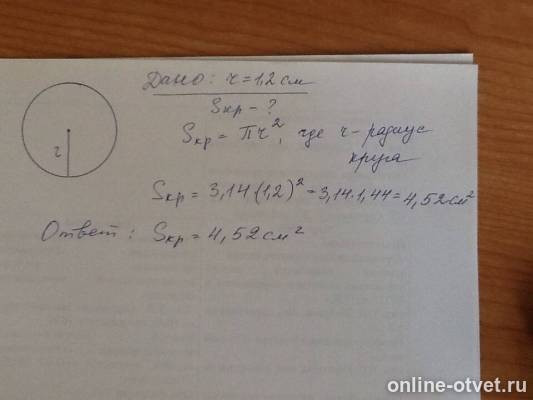 Дано: r = 1,2 см
Sкр - ?
Sкр = πr², где r - радиус
круга
r
Sкр = 3,14 (1,2)² = 3,14·1,44 = 4,52 см²
Ответ: Sкр = 4,52 см²
online-otvet.ru